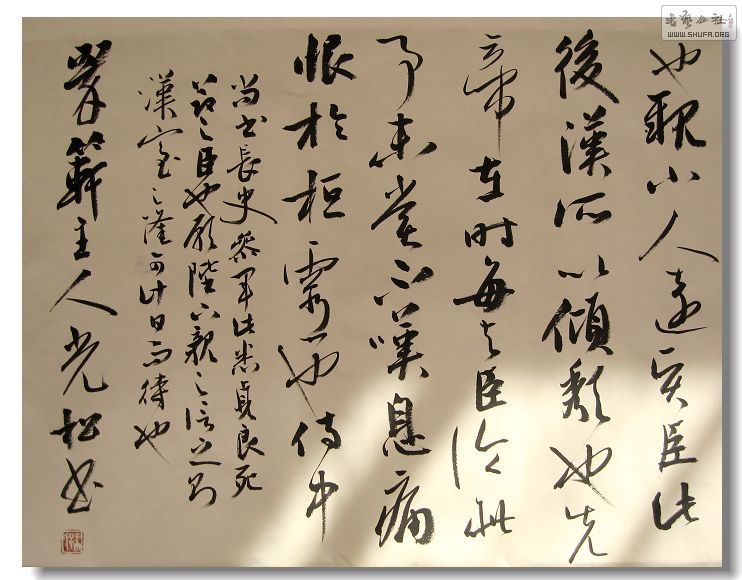 书艺公社
WWW.SHUFA.ORG
也親小人遠賢臣此
後漢所以傾頹也先
帝在時每與臣論此
事未嘗不嘆息痛
恨於桓靈也侍中
尚書長史參軍此悉貞良死
節之臣也願陛下親之信之則
漢室之隆可計日而待也
主人光松書